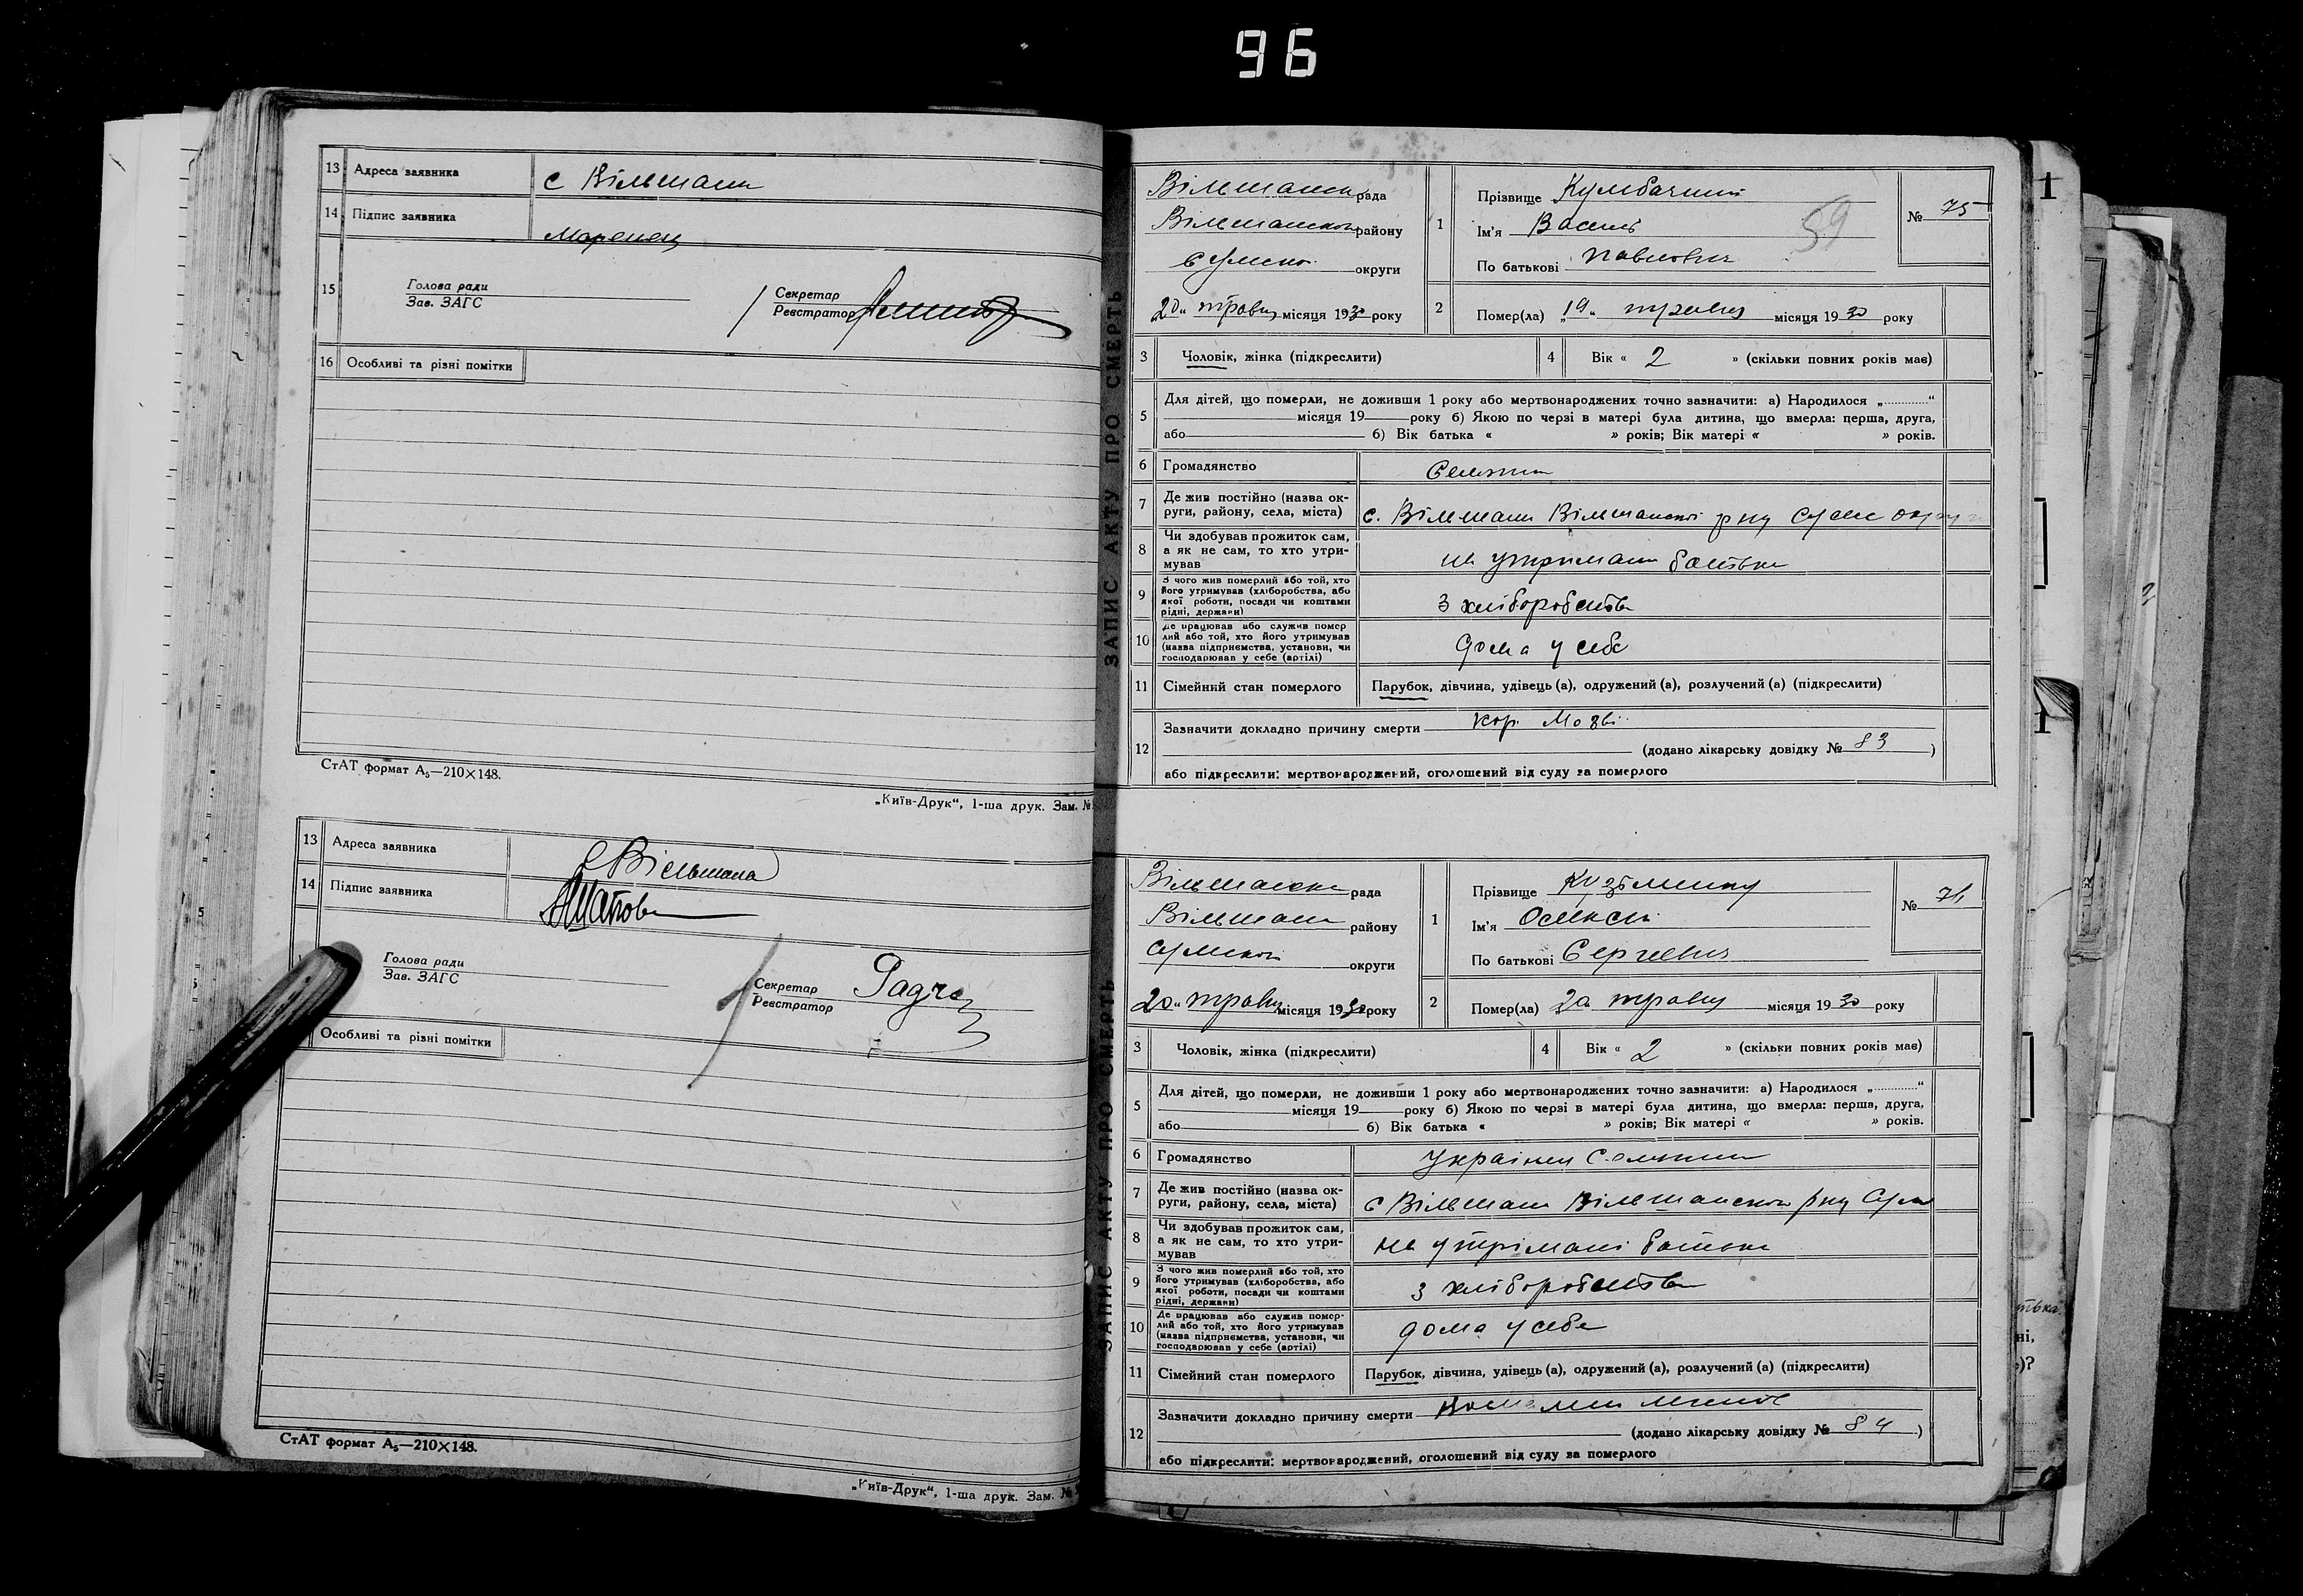 96
13 Адреса заявника с Вільшани
14 Підпис заявника
15 Голова ради
Зав. ЗАГС
Секретар
Реєстратор
16 Особливі та різні помітки
СтАТ формат А₅—210×148.
„Київ-Друк“, 1-ша друк. Зам. №
13 Адреса заявника с Вільшана
14 Підпис заявника
Голова ради
Зав. ЗАГС
Секретар
Реєстратор
Особливі та різні помітки
СтАТ формат А₅—210×148.
„Київ-Друк“, 1-ша друк. Зам. №
ЗАПИС АКТУ ПРО СМЕРТЬ
рада
району
округи
20 „ травня місяця 1930 року
1 Прізвище
Ім'я Василь
По батькові Павлович
59
№ 75
2 Помер(ла) „19“ травня місяця 1930 року
3 Чоловік, жінка (підкреслити)
4 Вік « 2 » (скільки повних років має)
5 Для дітей, що померли, не доживши 1 року або мертвонароджених точно зазначити: а) Народилося „............“
місяця 19 року б) Якою по черзі в матері була дитина, що вмерла: перша, друга,
або б) Вік батька « » років; Вік матері « » років.
6 Громадянство
7 Де жив постійно (назва ок-
руги, району, села, міста) с. Вільшани Вільшанської р ну
8 Чи здобував прожиток сам,
а як не сам, то хто утри-
мував на утримани батька
9 З чого жив померлий або той, хто
його утримував (хліборобства, або
якої роботи, посади чи коштами
рідні, держави) З хліборобства
10 Де працював або служив помер
лий або той, хто його утримував
(назва підприємства, установи, чи
господарював у себе (артілі) дома у себе
11 Сімейний стан померлого Парубок, дівчина, удівець (а), одружений (а), розлучений (а) (підкреслити)
12 Зазначити докладно причину смерти кор
(додано лікарську довідку № 83 )
або підкреслити: мертвонароджений, оголошений від суду за померлого
ЗАПИС АКТУ ПРО СМЕРТЬ
рада
Вільшан району
округи
20 „ травня місяця 1930 року
1 Прізвище
Ім'я Олексій
По батькові Сергеевич
№
2 Помер(ла) травня місяця 1930 року
3 Чоловік, жінка (підкреслити)
4 Вік « 2 » (скільки повних років має)
5 Для дітей, що померли, не доживши 1 року або мертвонароджених точно зазначити: а) Народилося „............“
місяця 19 року б) Якою по черзі в матері була дитина, що вмерла: перша, друга,
або б) Вік батька « » років; Вік матері « » років.
6 Громадянство
7 Де жив постійно (назва ок-
руги, району, села, міста) с Вільшани Вільшанської рну
8 Чи здобував прожиток сам,
а як не сам, то хто утри-
мував на утрімані батька
9 З чого жив померлий або той, хто
його утримував (хліборобства, або
якої роботи, посади чи коштами
рідні, держави) З хліборобства
10 Де працював або служив помер-
лий або той, хто його утримував
(назва підприємства, установи, чи
господарював у себе (артілі) дома у себе
11 Сімейний стан померлого Парубок, дівчина, удівець (а), одружений (а), розлучений (а) (підкреслити)
12 Зазначити докладно причину смерти
(додано лікарську довідку № 84 )
або підкреслити: мертвонароджений, оголошений від суду за померлого